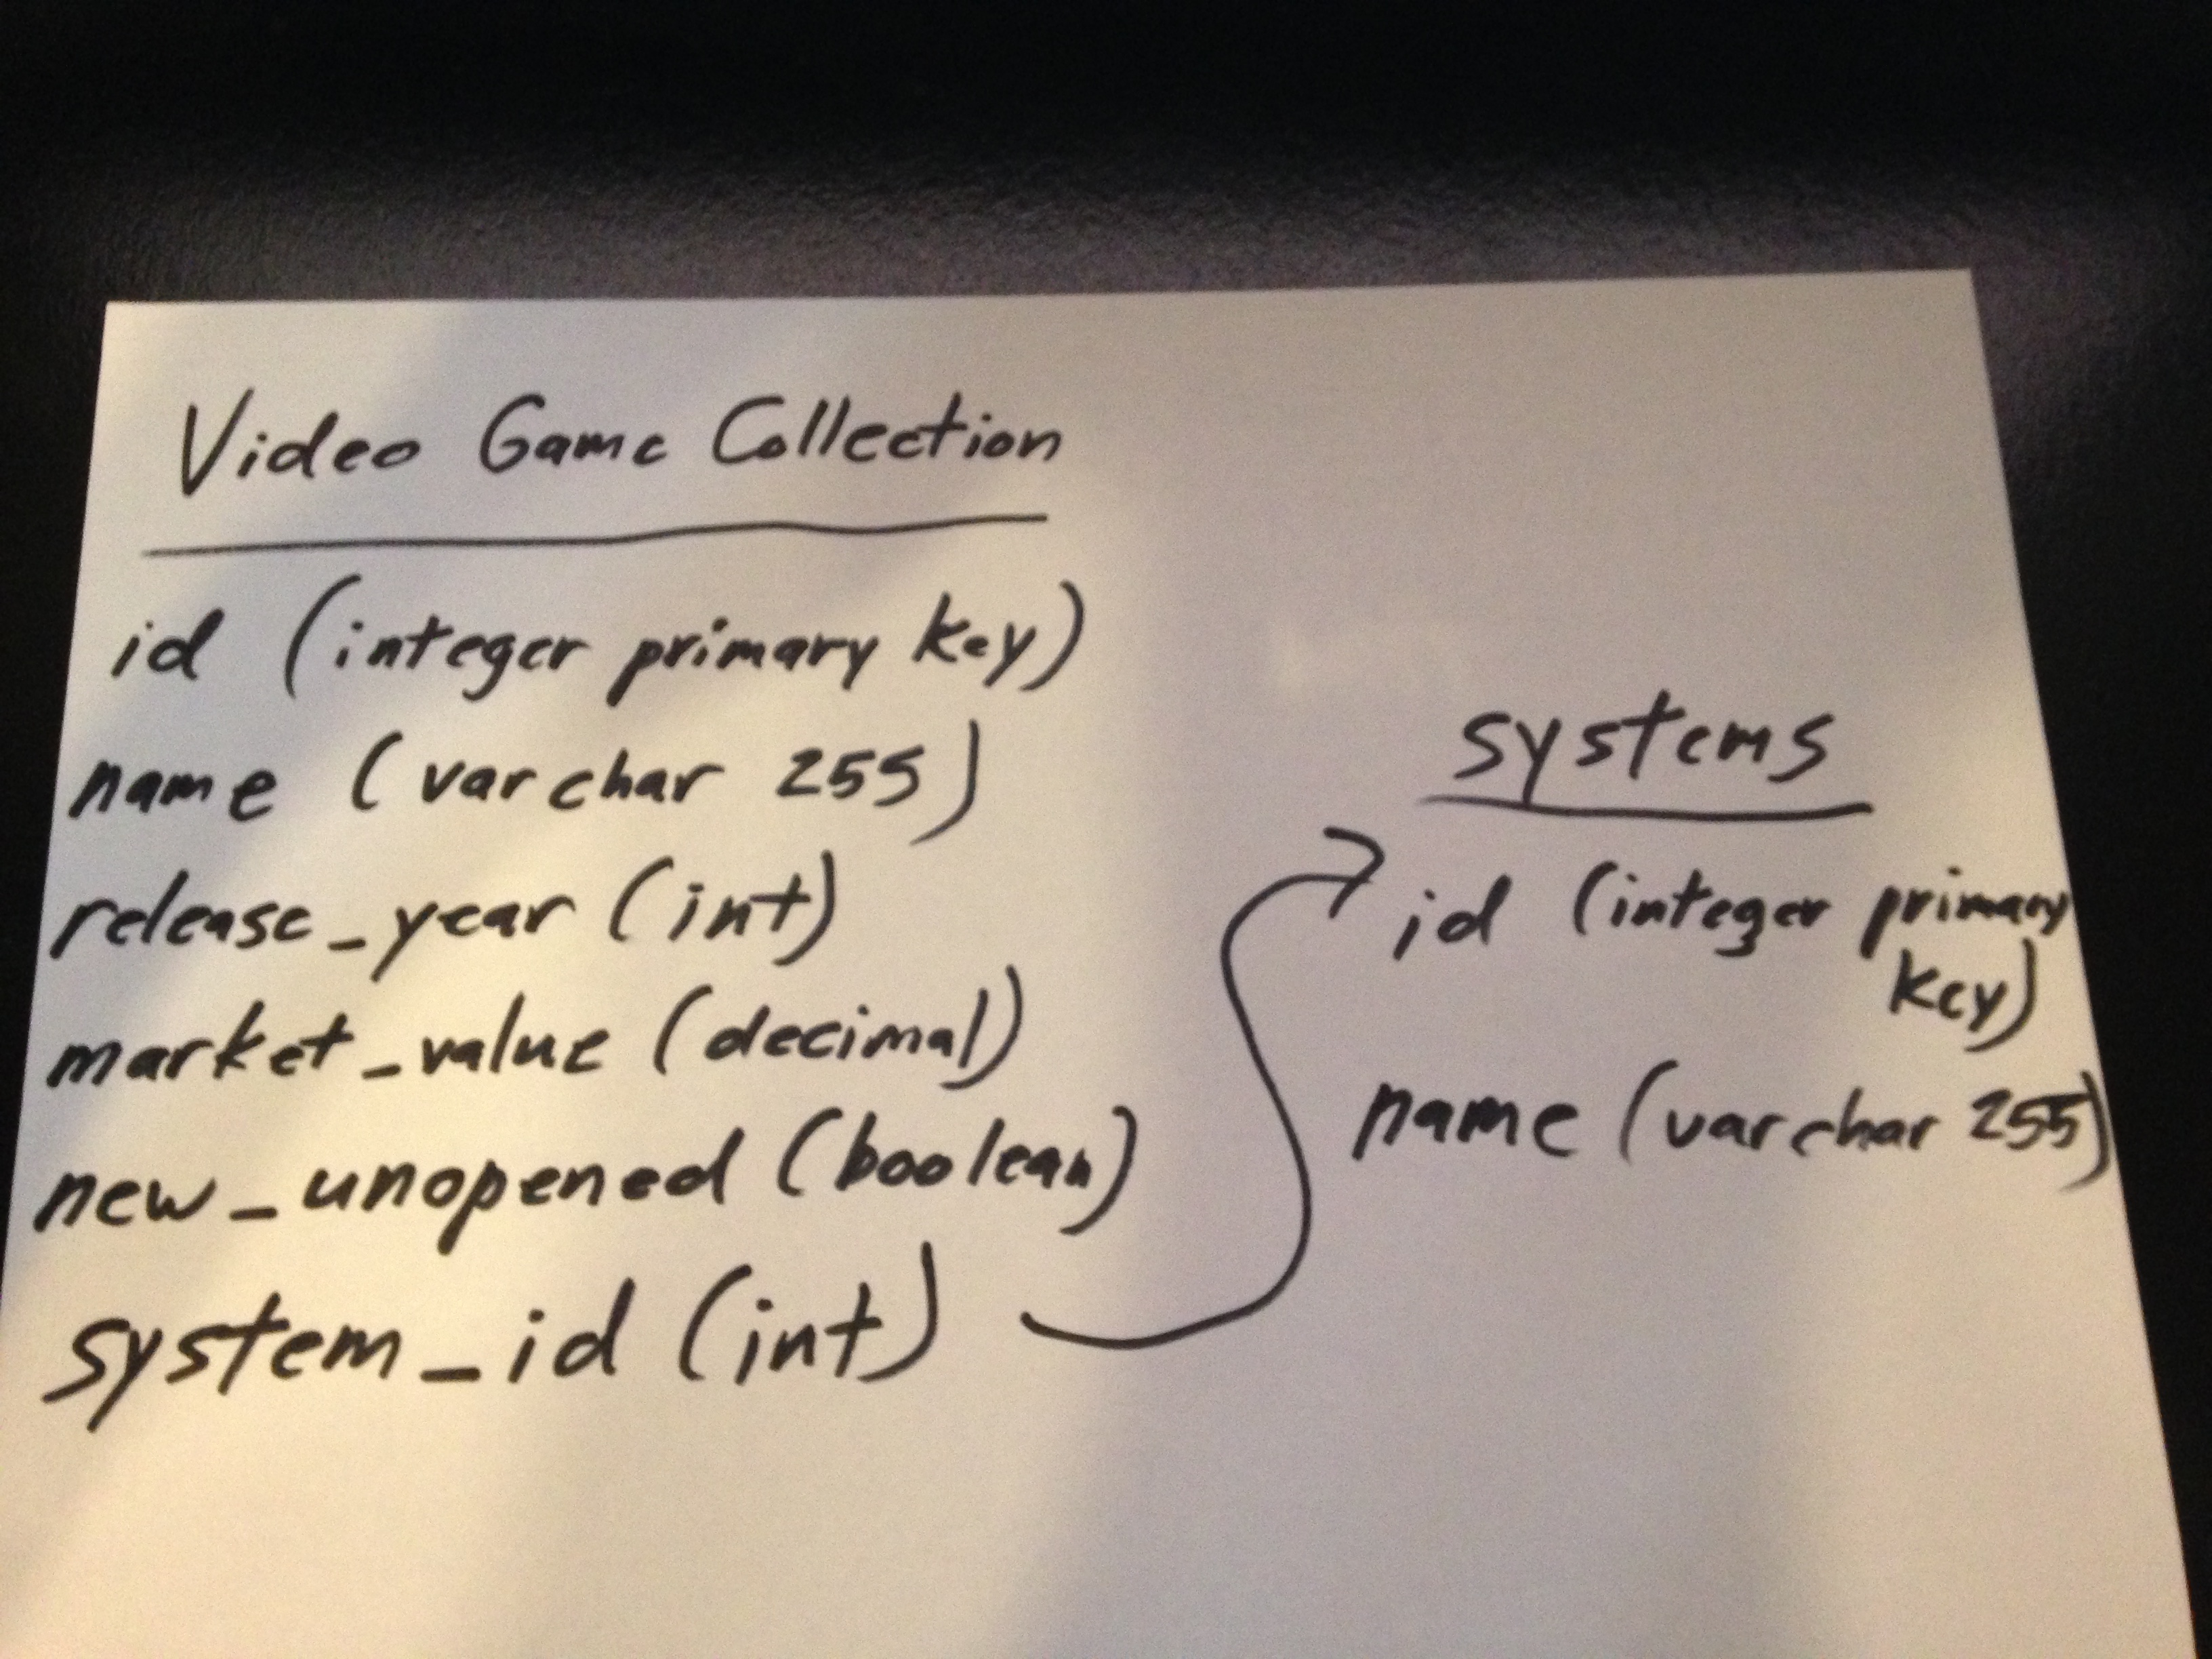 Video Game Collection
id (integer primary key)
name (varchar 255)
release_year (int)
market_value (decimal)
new_unopened (boolean)
system_id (int)
systems
id (integer primary
key)
name (varchar 255)